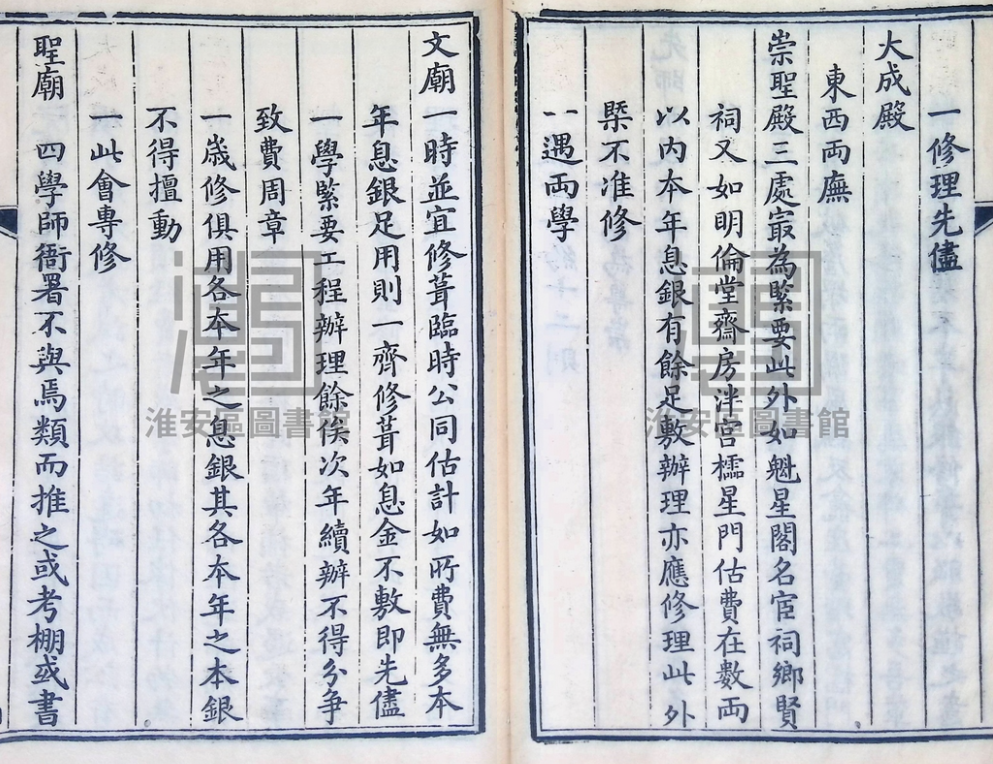 一修理先儘
大成殿
東西両廡
崇聖殿三處㝡為緊要此外如魁星閣名宦祠鄉賢
祠又如明倫堂齋房泮宮櫺星門估費在數両
以內本年息銀有餘足敷辦理亦應修理此外
槩不准修
一遇両學
文廟一時並宜修葺臨時公同估計如所費無多本
年息銀足用則一齊修葺如息金不敷即先儘
一學緊要工程辦理餘俟次年續辦不得分争
致費周章
一歲修俱用各本年之息銀其各本年之本銀
不得擅動
一此會專修
聖廟四學師衙署不與焉類而推之或考棚或書
淮安區圖書館
淮安區圖書館